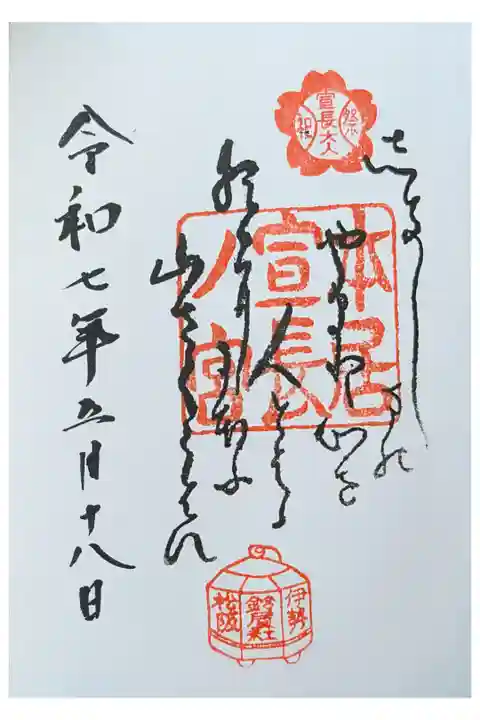 宣長大人
祭
志きしまの
やまと心を
人とはゝ
朝日ににほふ
山さくらはな
本居
宣長
ノ宮
令和七年五月十八日
伊勢
鈴屋社
松阪